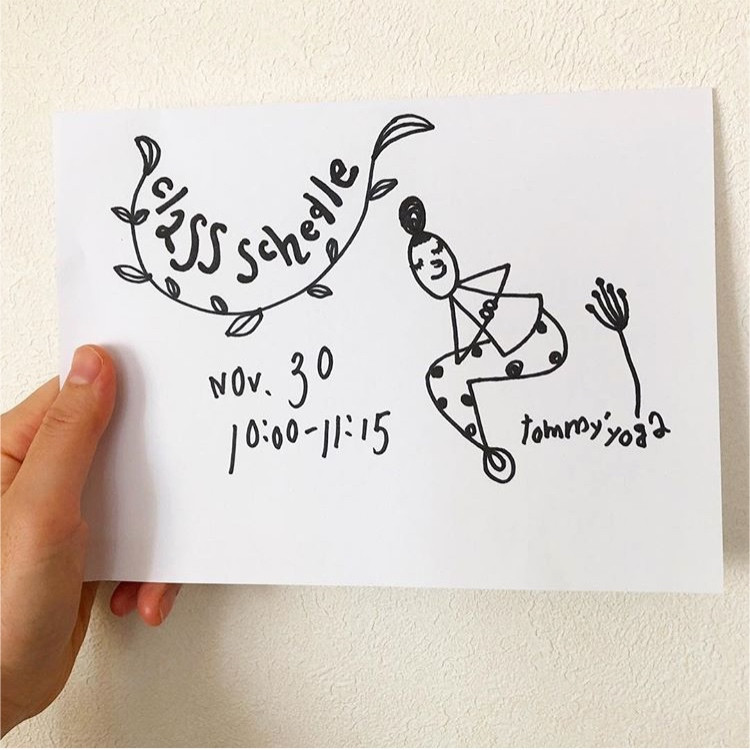 class schedle
NOV. 30
10:00-11:15
tommy'yoga